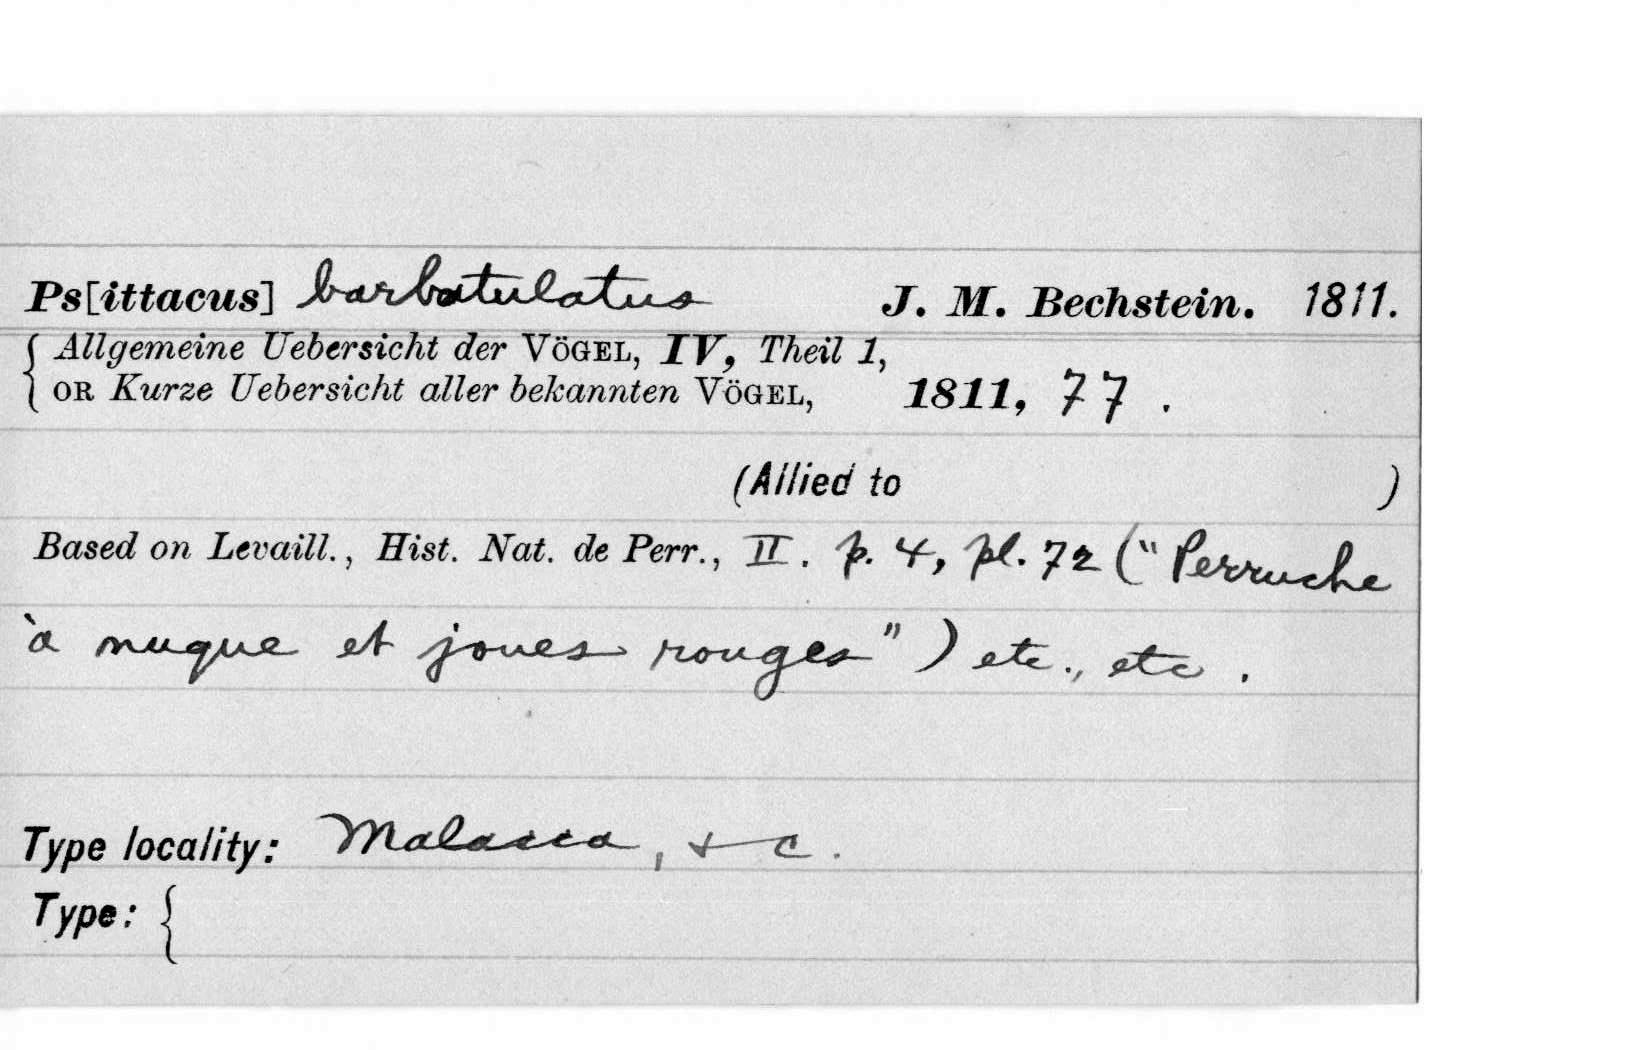 Ps[ittacus] barbatulatus J. M. Bechstein. 1811.
{ Allgemeine Uebersicht der VÖGEL, IV, Theil 1,
OR Kurze Uebersicht aller bekannten VÖGEL, 1811, 77 .
(Allied to )
Based on Levaill., Hist. Nat. de Perr., II. p. 4, pl. 72 ("Perruche
à nuque et joues rouges") etc., etc .
Type locality: Malacca, &c.
Type: {